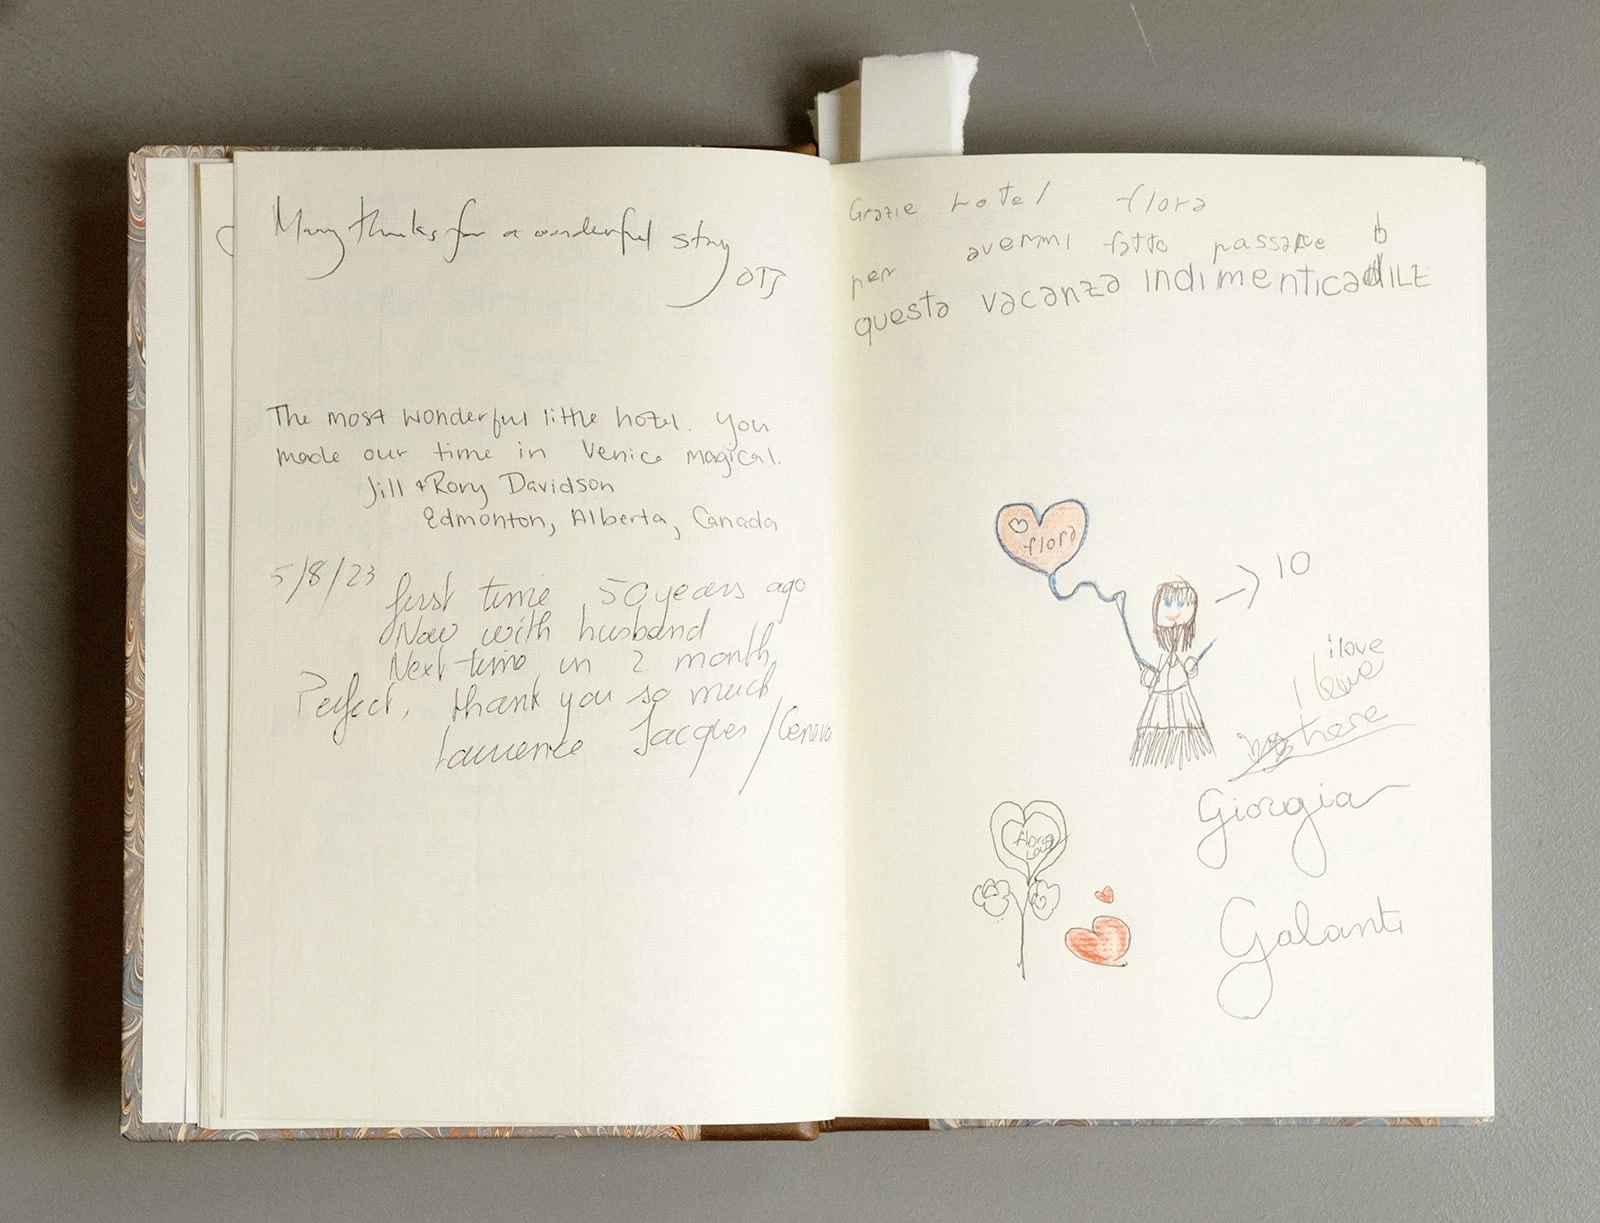 Many thanks for a wonderful stay
The most wonderful little hotel. You
made our time in Venice magical.
Jill + Rory Davidson
Edmonton, Alberta, Canada
5/8/23 first time 50 years ago
Now with husband
Next time in 2 month
Perfect, thank you so much
Laurence Jacques / Geneva
Grazie hotel flora
per avermi fatto passare
b
questa vacanza INDIMENTICAdILE
flora
10
i love
I love
here
Giorgia
Galanti
flora
love